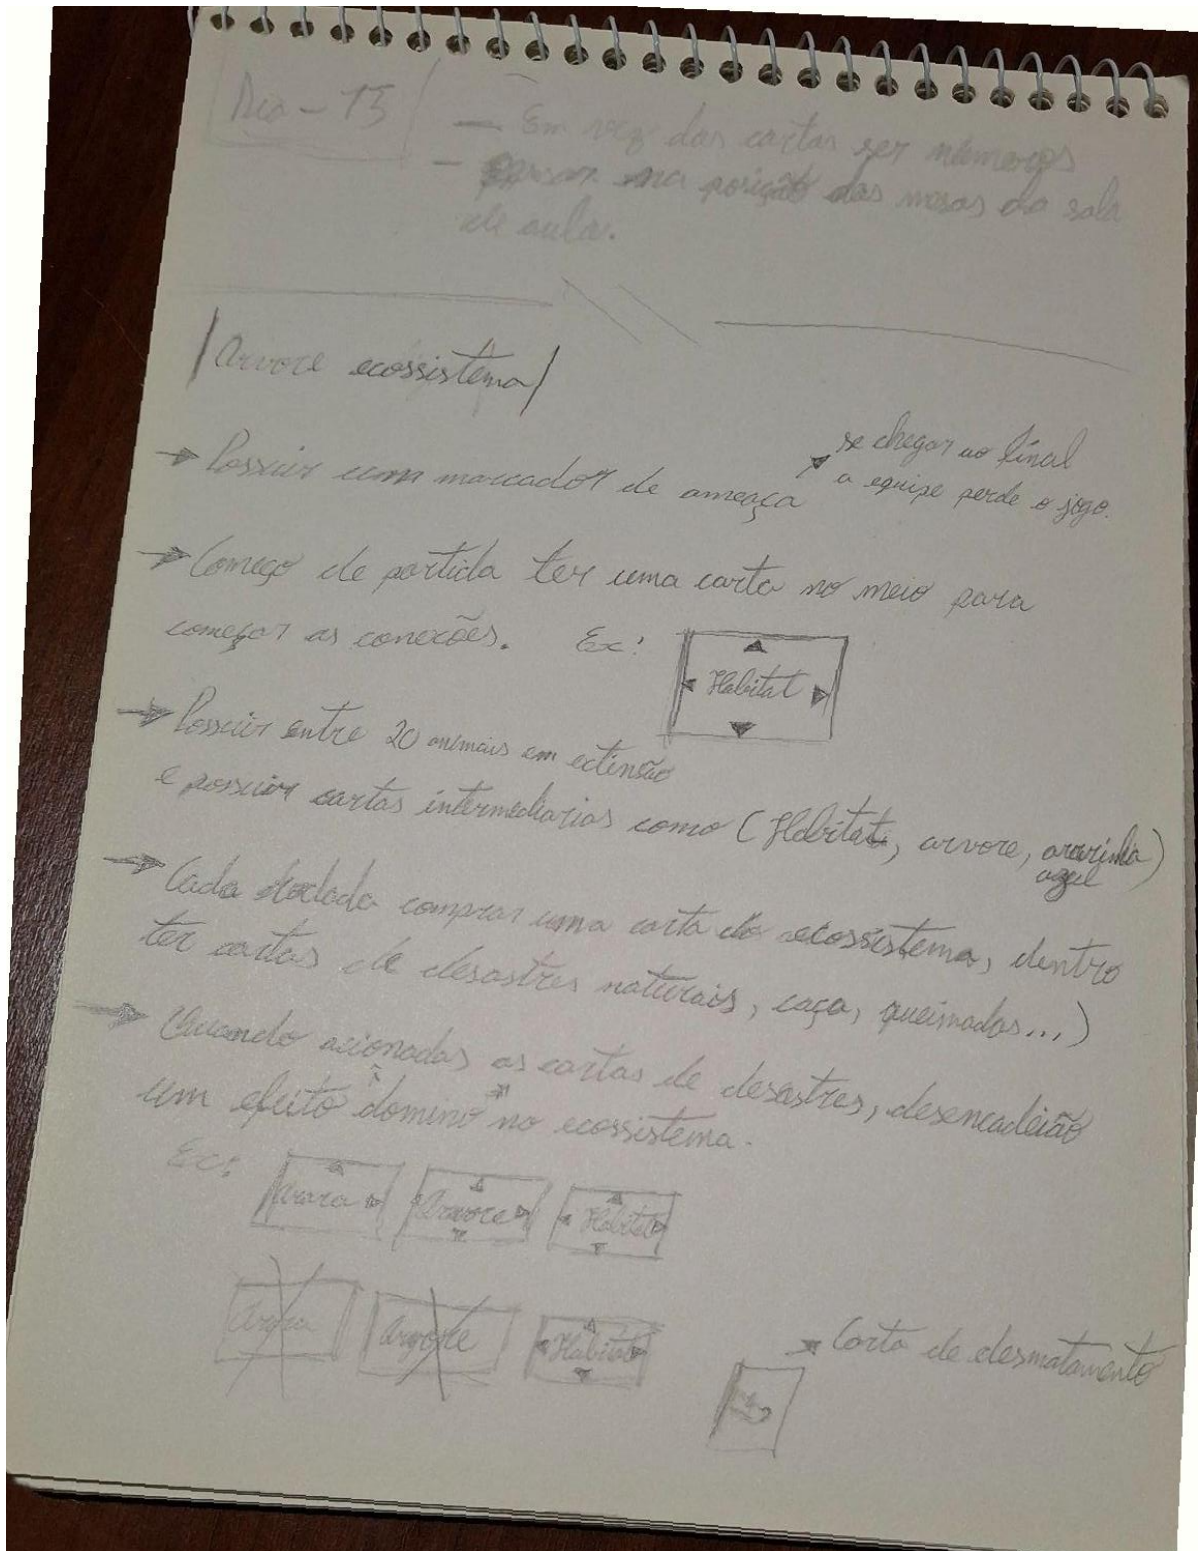 Dia - 15
— Em vez das cartas ser números
— pensar na posição das mesas da sala
de aula.
Arvore ecossistema
→ Possuir um marcador de ameaça
se chegar ao final
a equipe perde o jogo.
→ Começo de partida ter uma carta no meio para
começar as conexões. Ex:
Habitat
→ Possuir entre 20 animais em extinsão
e possuir cartas intermediarias como (Habitat, arvore, ararinha
azul)
→ Cada rodada comprar uma carta do ecossistema, dentro
ter cartas de desastres naturais, caça, queimadas...)
→ Quando acionadas as cartas de desastres, desencadeião
um efeito "domino" no ecossistema.
Ex:
Arara Arvore Habitat
Arara Arvore Habitat
→ Carta de desmatamento